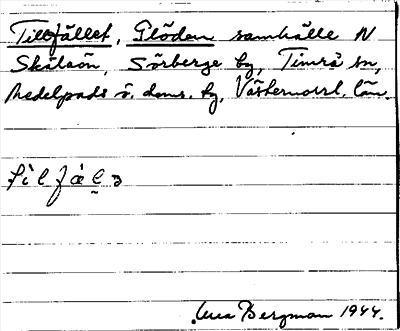 Tillfället, Glöden samhälle N
Skilsån, Sörberge by, Timrå sn,
Medelpads ö. doms. by, Västernorrl. län.
Bergman 1944.